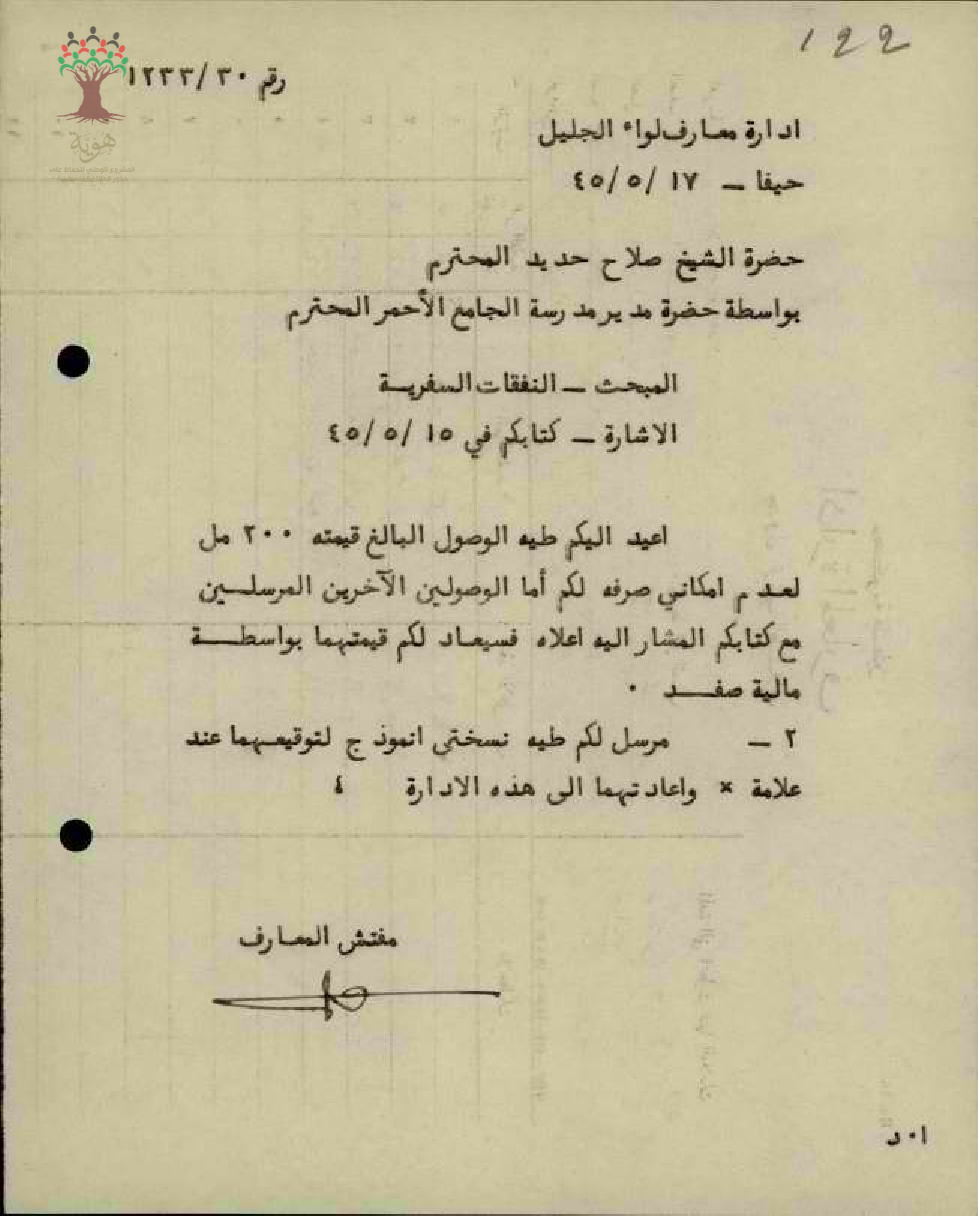 122
رقم ١٢٣٣/٣٠
هوية
ادارة معارف لواء الجليل
حيفا – ١٧ /٥/ ٤٥
حضرة الشيخ صلاح حديد المحترم
بواسطة حضرة مدير مدرسة الجامع الأحمر المحترم
المبحث – النفقات السفرية
الاشارة – كتابكم في ١٥ /٥/ ٤٥
اعيد اليكم طيه الوصول البالغ قيمته ٢٠٠ مل
لعدم امكاني صرفه لكم أما الوصولين الآخرين المرسلين
مع كتابكم المشار اليه اعلاه فسيعاد لكم قيمتهما بواسطة
مالية صفد ٠
٢ – مرسل لكم طيه نسختي انموذج لتوقيعهما عند
علامة × واعادتهما الى هذه الادارة ،
مفتش المعارف
ا٠د